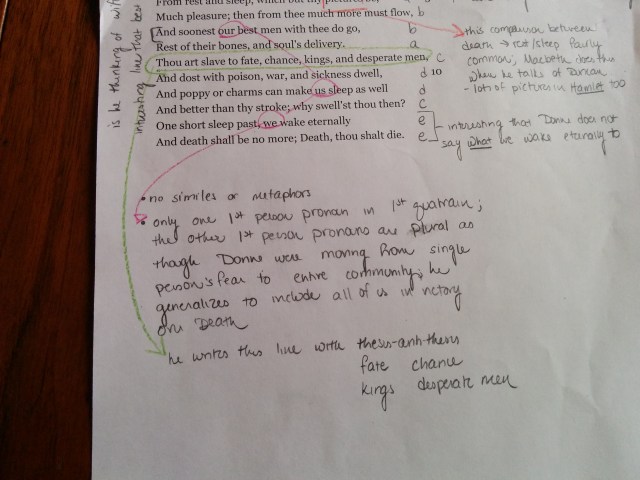 From rest and sleep, which but thy pictures be,
Much pleasure; then from thee much more must flow, b
And soonest our best men with thee do go, b
Rest of their bones, and soul's delivery. a
Thou art slave to fate, chance, kings, and desperate men, c
And dost with poison, war, and sickness dwell, d 10
And poppy or charms can make us sleep as well d
And better than thy stroke; why swell'st thou then? C
One short sleep past, we wake eternally e
And death shall be no more; Death, thou shalt die. e
is he thinking of wife
interesting line that best
this comparison between
death → rest/sleep fairly
common; Macbeth does this
when he talks of Duncan
- lots of pictures in Hamlet too
interesting that Donne does not
say what we wake eternally to
• no similes or metaphors
• only one 1st person pronoun in 1st quatrain;
the other 1st person pronouns are plural as
though Donne were moving from single
person's fear to entire community; he
generalizes to include all of us in victory
over Death
he writes this line with thesis-anti-thesis
fate chance
kings desperate men